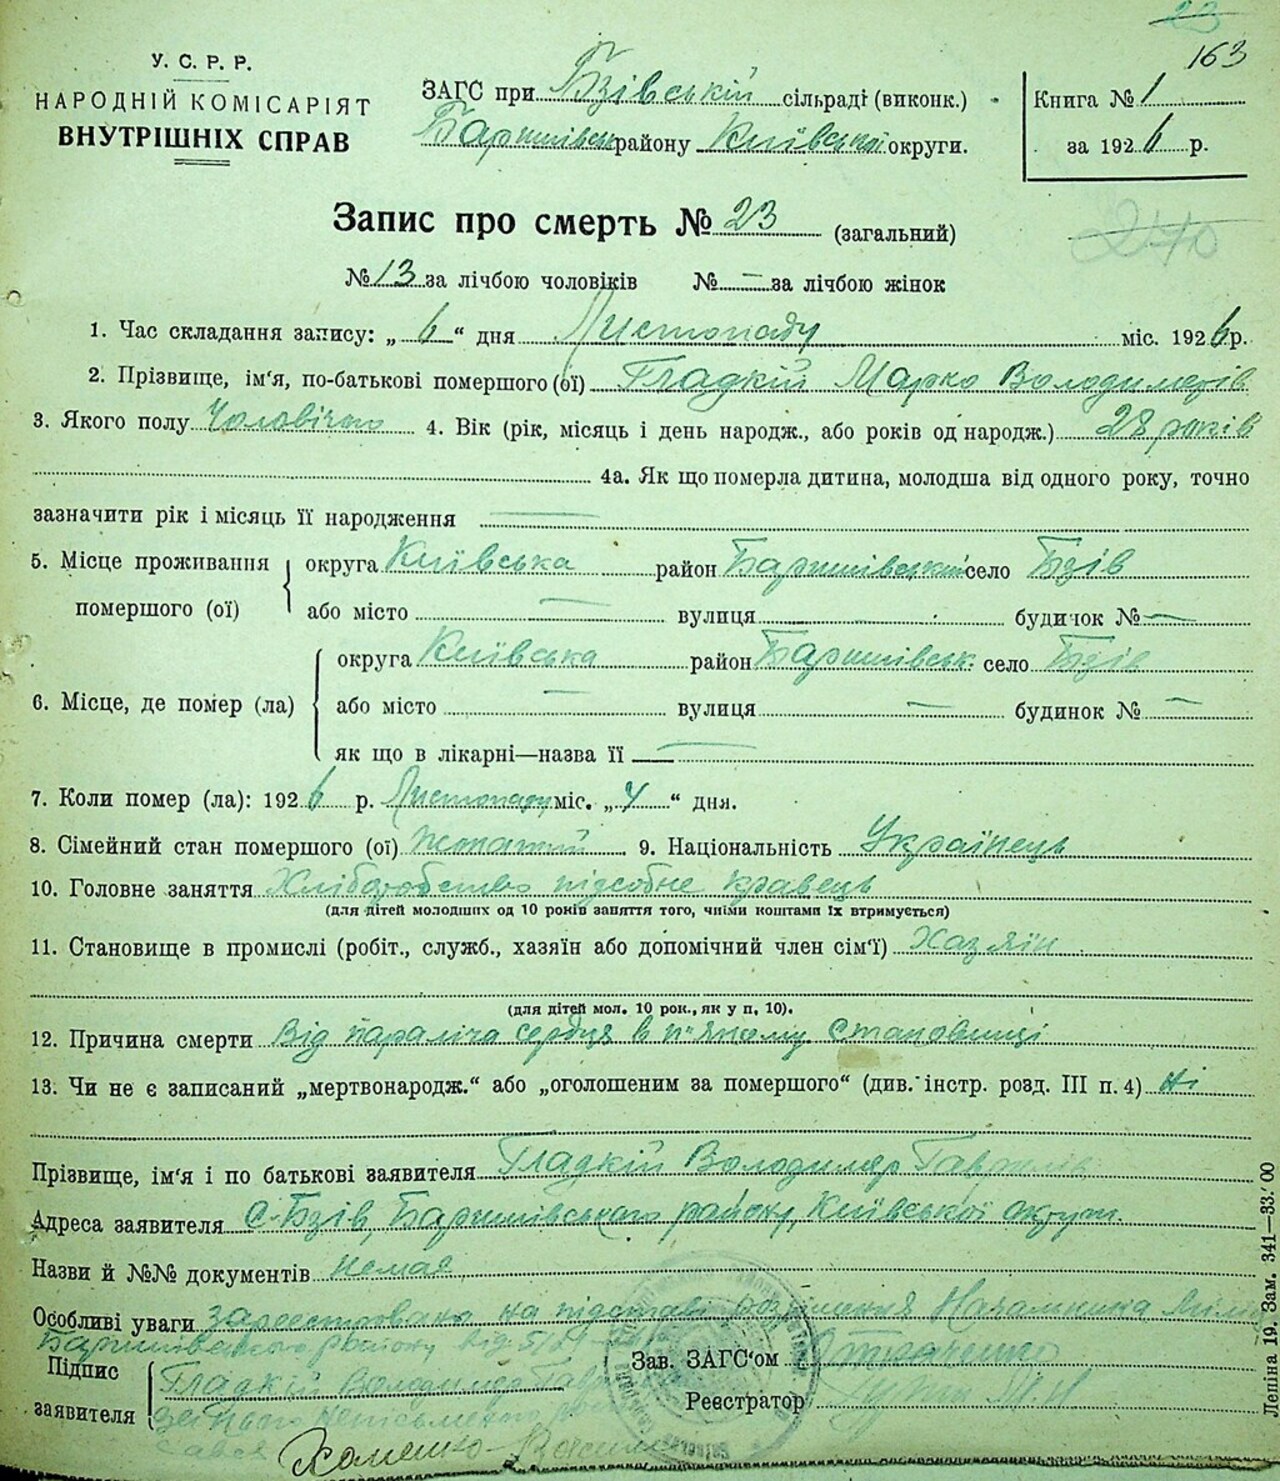 23
163
У. С. Р. Р.
НАРОДНІЙ КОМІСАРІЯТ
ВНУТРІШНІХ СПРАВ
ЗАГС при Бзівській сільраді (виконк.)
Баришівськ району Київської округи.
Книга № 1
за 1926 р.
Запис про смерть № 23 (загальний)
240
№ 13 за лічбою чоловіків № — за лічбою жінок
1. Час складання запису: „ 6 “ дня Листопаду міс. 1926 р.
2. Прізвище, ім‘я, по-батькові помершого (ої) Гладкій Марко Володимерів
3. Якого полу Чоловічого 4. Вік (рік, місяць і день народж., або років од народж.) 28 років
4а. Як що померла дитина, молодша від одного року, точно
зазначити рік і місяць її народження —
5. Місце проживання помершого (ої)
округа Київська район Баришівський село Бзів
або місто — вулиця будинок № —
6. Місце, де помер (ла)
округа Київська район Баришівськ. село Бзів
або місто — вулиця — будинок № —
як що в лікарні—назва її —
7. Коли помер (ла): 1926 р. Листопаду міс. „ 4 “ дня.
8. Сімейний стан помершого (ої) Жонатий 9. Національність Українець
10. Головне заняття Хліборобство підсобне кравець
(для дітей молодших од 10 років заняття того, чиїми коштами їх втримується)
11. Становище в промислі (робіт., служб., хазяїн або допомічний член сім‘ї) Хазяїн
(для дітей мол. 10 рок., як у п. 10).
12. Причина смерти Від параліча сердця в п'яному становищі
13. Чи не є записаний „мертвонародж.“ або „оголошеним за помершого“ (див. інстр. розд. III п. 4) Ні
Прізвище, ім‘я і по батькові заявителя Гладкій Володимер Гаврилів
Адреса заявителя С-Бзів, Баришівського району, Київської округи.
Назви й №№ документів Немає
Особливі уваги зареєстровано на підставі розрішення Начальника Міліції
Баришівського району від 5/
Підпис заявителя
Гладкій Володимер
за нього неписьменного
Хоменко
Зав. ЗАГС‘ом
Реєстратор
Лепіна 19. Зам. 341—33.   00